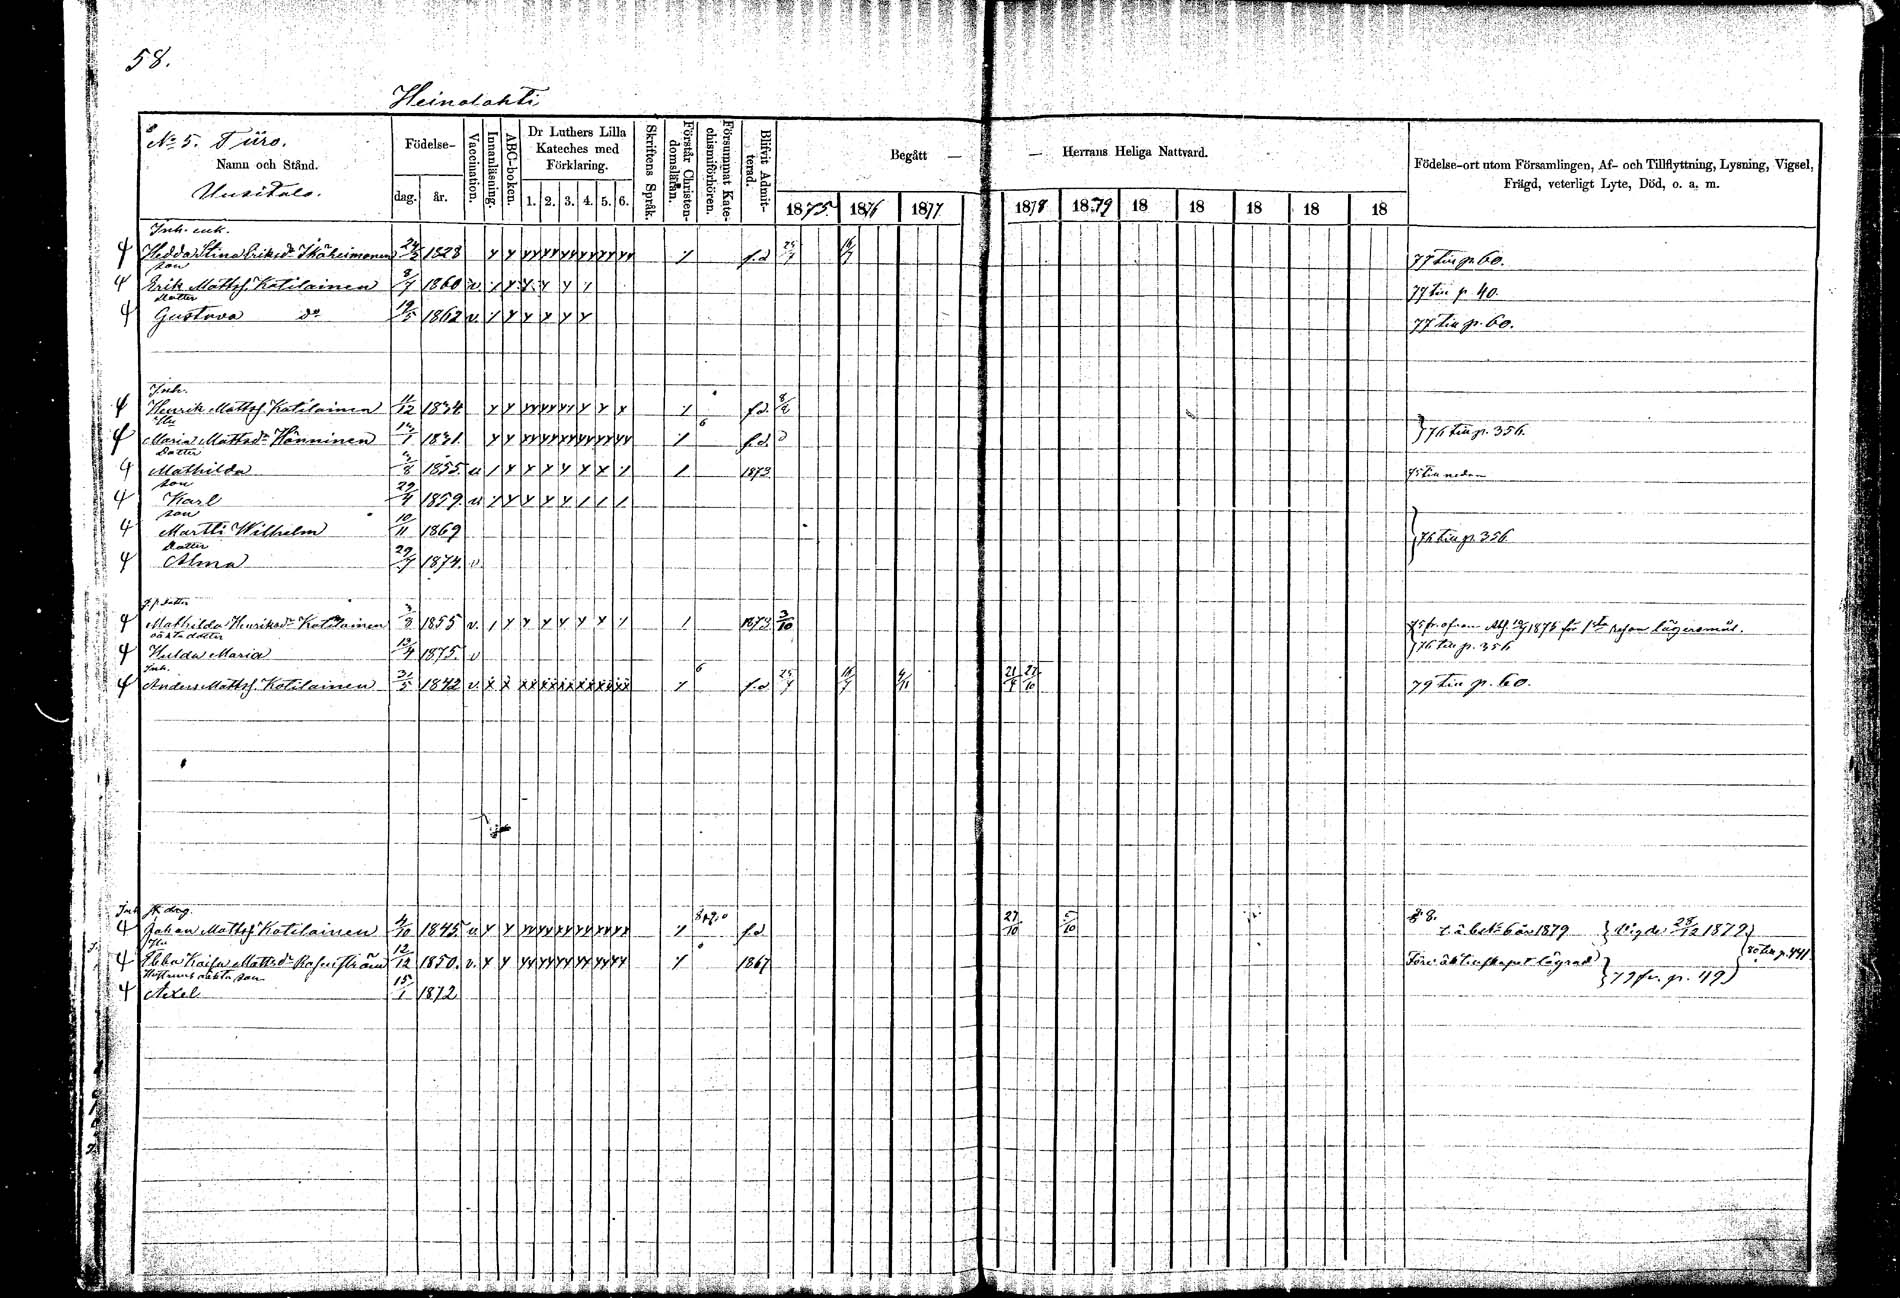 58.
Heinolahti
No 5. Türo.
Namn och Stånd.
Uusitalo.
Födelse-
dag. år.
Vaccination.
Innanläsning.
ABC-boken.
Dr Luthers Lilla Kateches med Förklaring.
1. 2. 3. 4. 5. 6.
Skriftens Språk.
Förstår Christendomsläran.
Försummat Katechismiförhören.
Blifvit Admitterad.
Begått — — Herrans Heliga Nattvard.
1875. 1876 1877 1878 1879 18 18 18 18 18
Födelse-ort utom Församlingen, Af- och Tillflyttning, Lysning, Vigsel,
Frägd, veterligt Lyte, Död, o. a. m.
Inh. enk.
Hedda Stina Eriksdr Ikäheimonen 24/5 1823 f.d 25/7 16/7 77 till p. 60.
son
Erik Mattss. Kotilainen 8/7 1860 v. 77 till p. 40.
Dotter
Gustava do 19/5 1862 v. 77 till p. 60.
Inh.
Henrik Mattss. Kotilainen 11/12 1834 f.d.
Hu
Maria Mattsdr Hänninen 1831. 6 f.d. 76 till p. 356.
Dotter
Mathilda 3/8 1855. v 1873 75 till nedan
son
Karl 29/4 1859. v
son
Martti Wilhelm 10/11 1869 76 till p. 356
Dotter
Alma 29/7 1874. v
dotter
Mathilda Henriksdr Kotilainen 3/8 1855 v. 1873 3/10 75 fr. ofvan 1875 för 1sta resan lägersmål.
oäkta dotter
Hulda Maria 13/4 1875. v 76 till p. 356
Inh.
Anders Mattss. Kotilainen 31/5 1842 v. 6 f.d 25/7 16/7 4/11 21/4 27/10 79 till p. 60.
Inh.
Johan Mattss. Kotilainen 4/10 1845. v f.d 27/10 5/10 § 8. 1879 Vigde 28/12 1879
Hu
Ebba Kaisa Mattsdr Rosenström 12/12 1850. v. 1867 Före äktenskapet lägrad 79 fr. p. 49 80 till p. 441
Hustruns oäkta son
Axel 15/1 1872